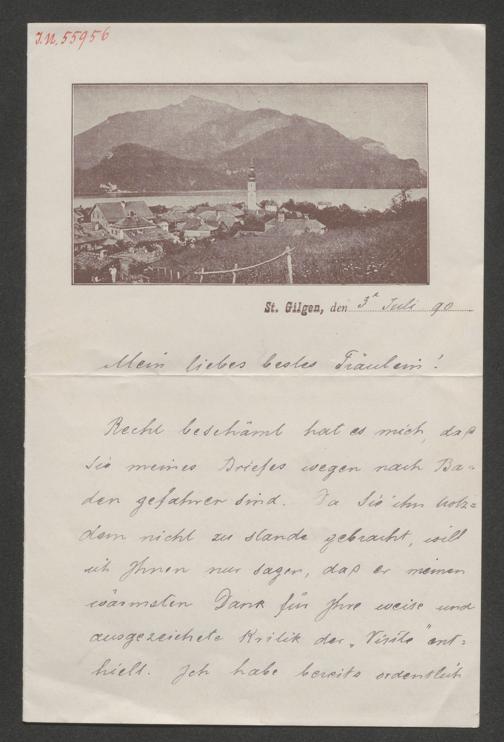 J.N. 55956
St. Gilgen, den 3t Juli 90
Mein liebes bestes Fräulein!
Recht beschämt hat es mich, daß
Sie meines Briefes wegen nach Ba=
den gefahren sind. Da Sie ihn trotz=
dem nicht zu stande gebracht, will
ich Ihnen nur sagen, daß er meinen
wärmsten Dank für Ihre weise und
ausgezeichete Kritik der „Visite" ent=
hielt. Ich habe bereits ordentlich